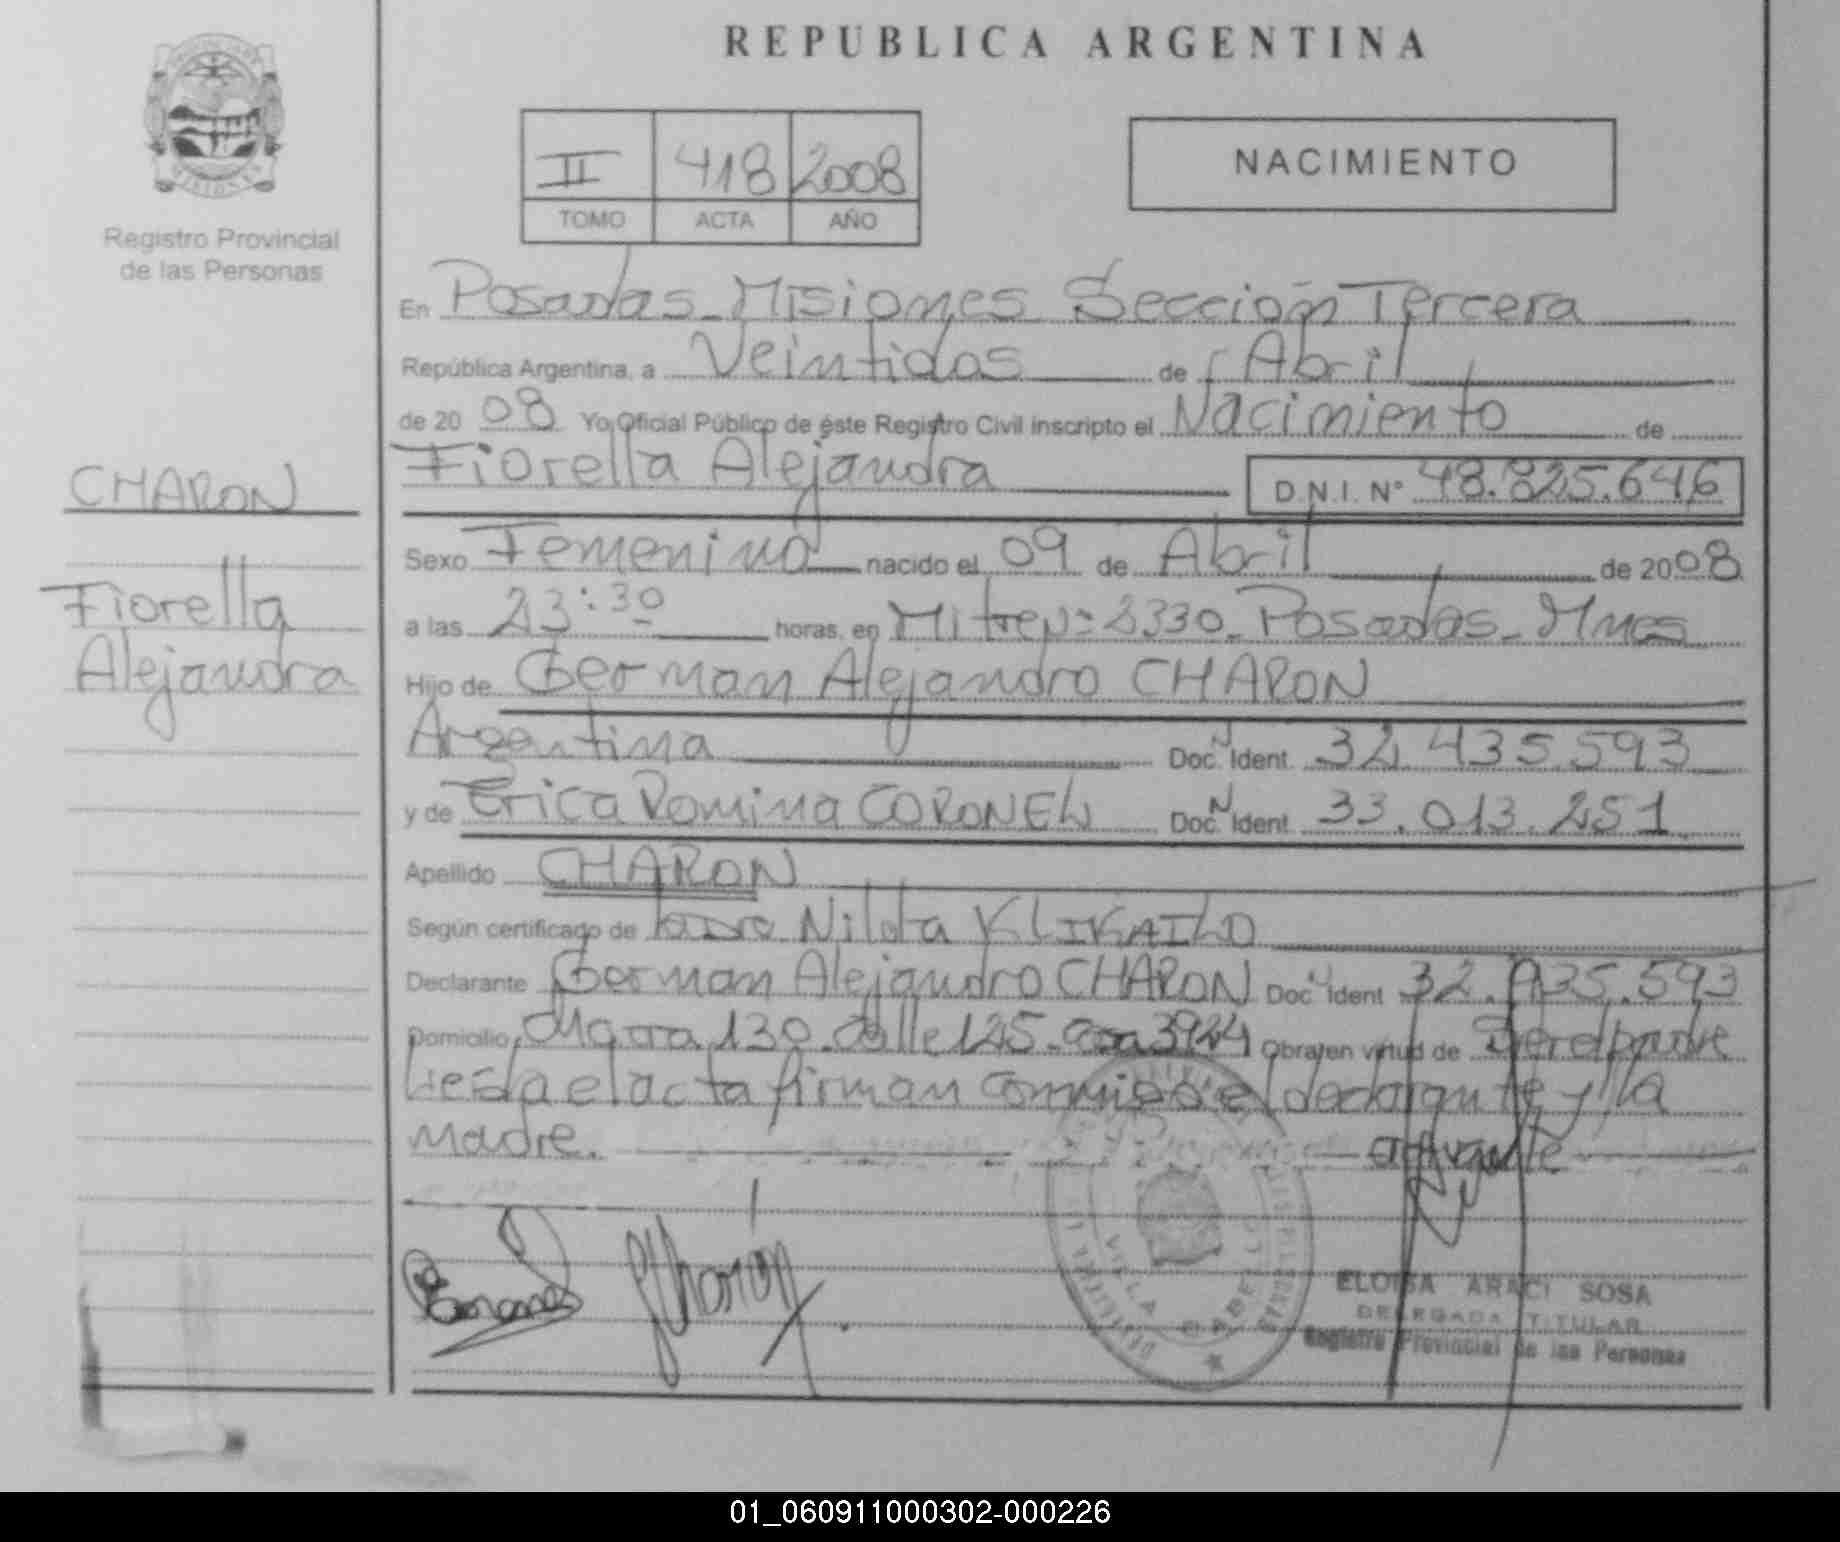 REPUBLICA ARGENTINA
II 418 2008
TOMO ACTA AÑO
NACIMIENTO
MISIONES
Registro Provincial
de las Personas
CHARON
Fiorella
Alejandra
En Posadas - Misiones Sección Tercera
República Argentina, a Veintidos de Abril
de 2008 Yo Oficial Público de éste Registro Civil inscripto el Nacimiento de
Fiorella Alejandra D.N.I. Nº 48.825.646
Sexo Femenino nacido el 09 de Abril de 2008
a las 23:30 horas, en Mitre Nº 2330 - Posadas - Mnes
Hijo de German Alejandro CHARON
Argentina Doc. N Ident. 32.435.593
y de Erica Romina CORONEL Doc. N Ident 33.013.251
Apellido CHARON
Según certificado de Nilda KLIKAILO
Declarante German Alejandro CHARON Doc. N Ident 32.435.593
Domicilio Chacra 130 - Calle 125 - Casa 3924 Obra en virtud de Ser el padre
Leida el acta firman conmigo el declarante y la
madre.
Charón
VILLA CABELLO
ELOISA ARACI SOSA
DELEGADA TITULAR
Registro Provincial de las Personas
01_060911000302-000226